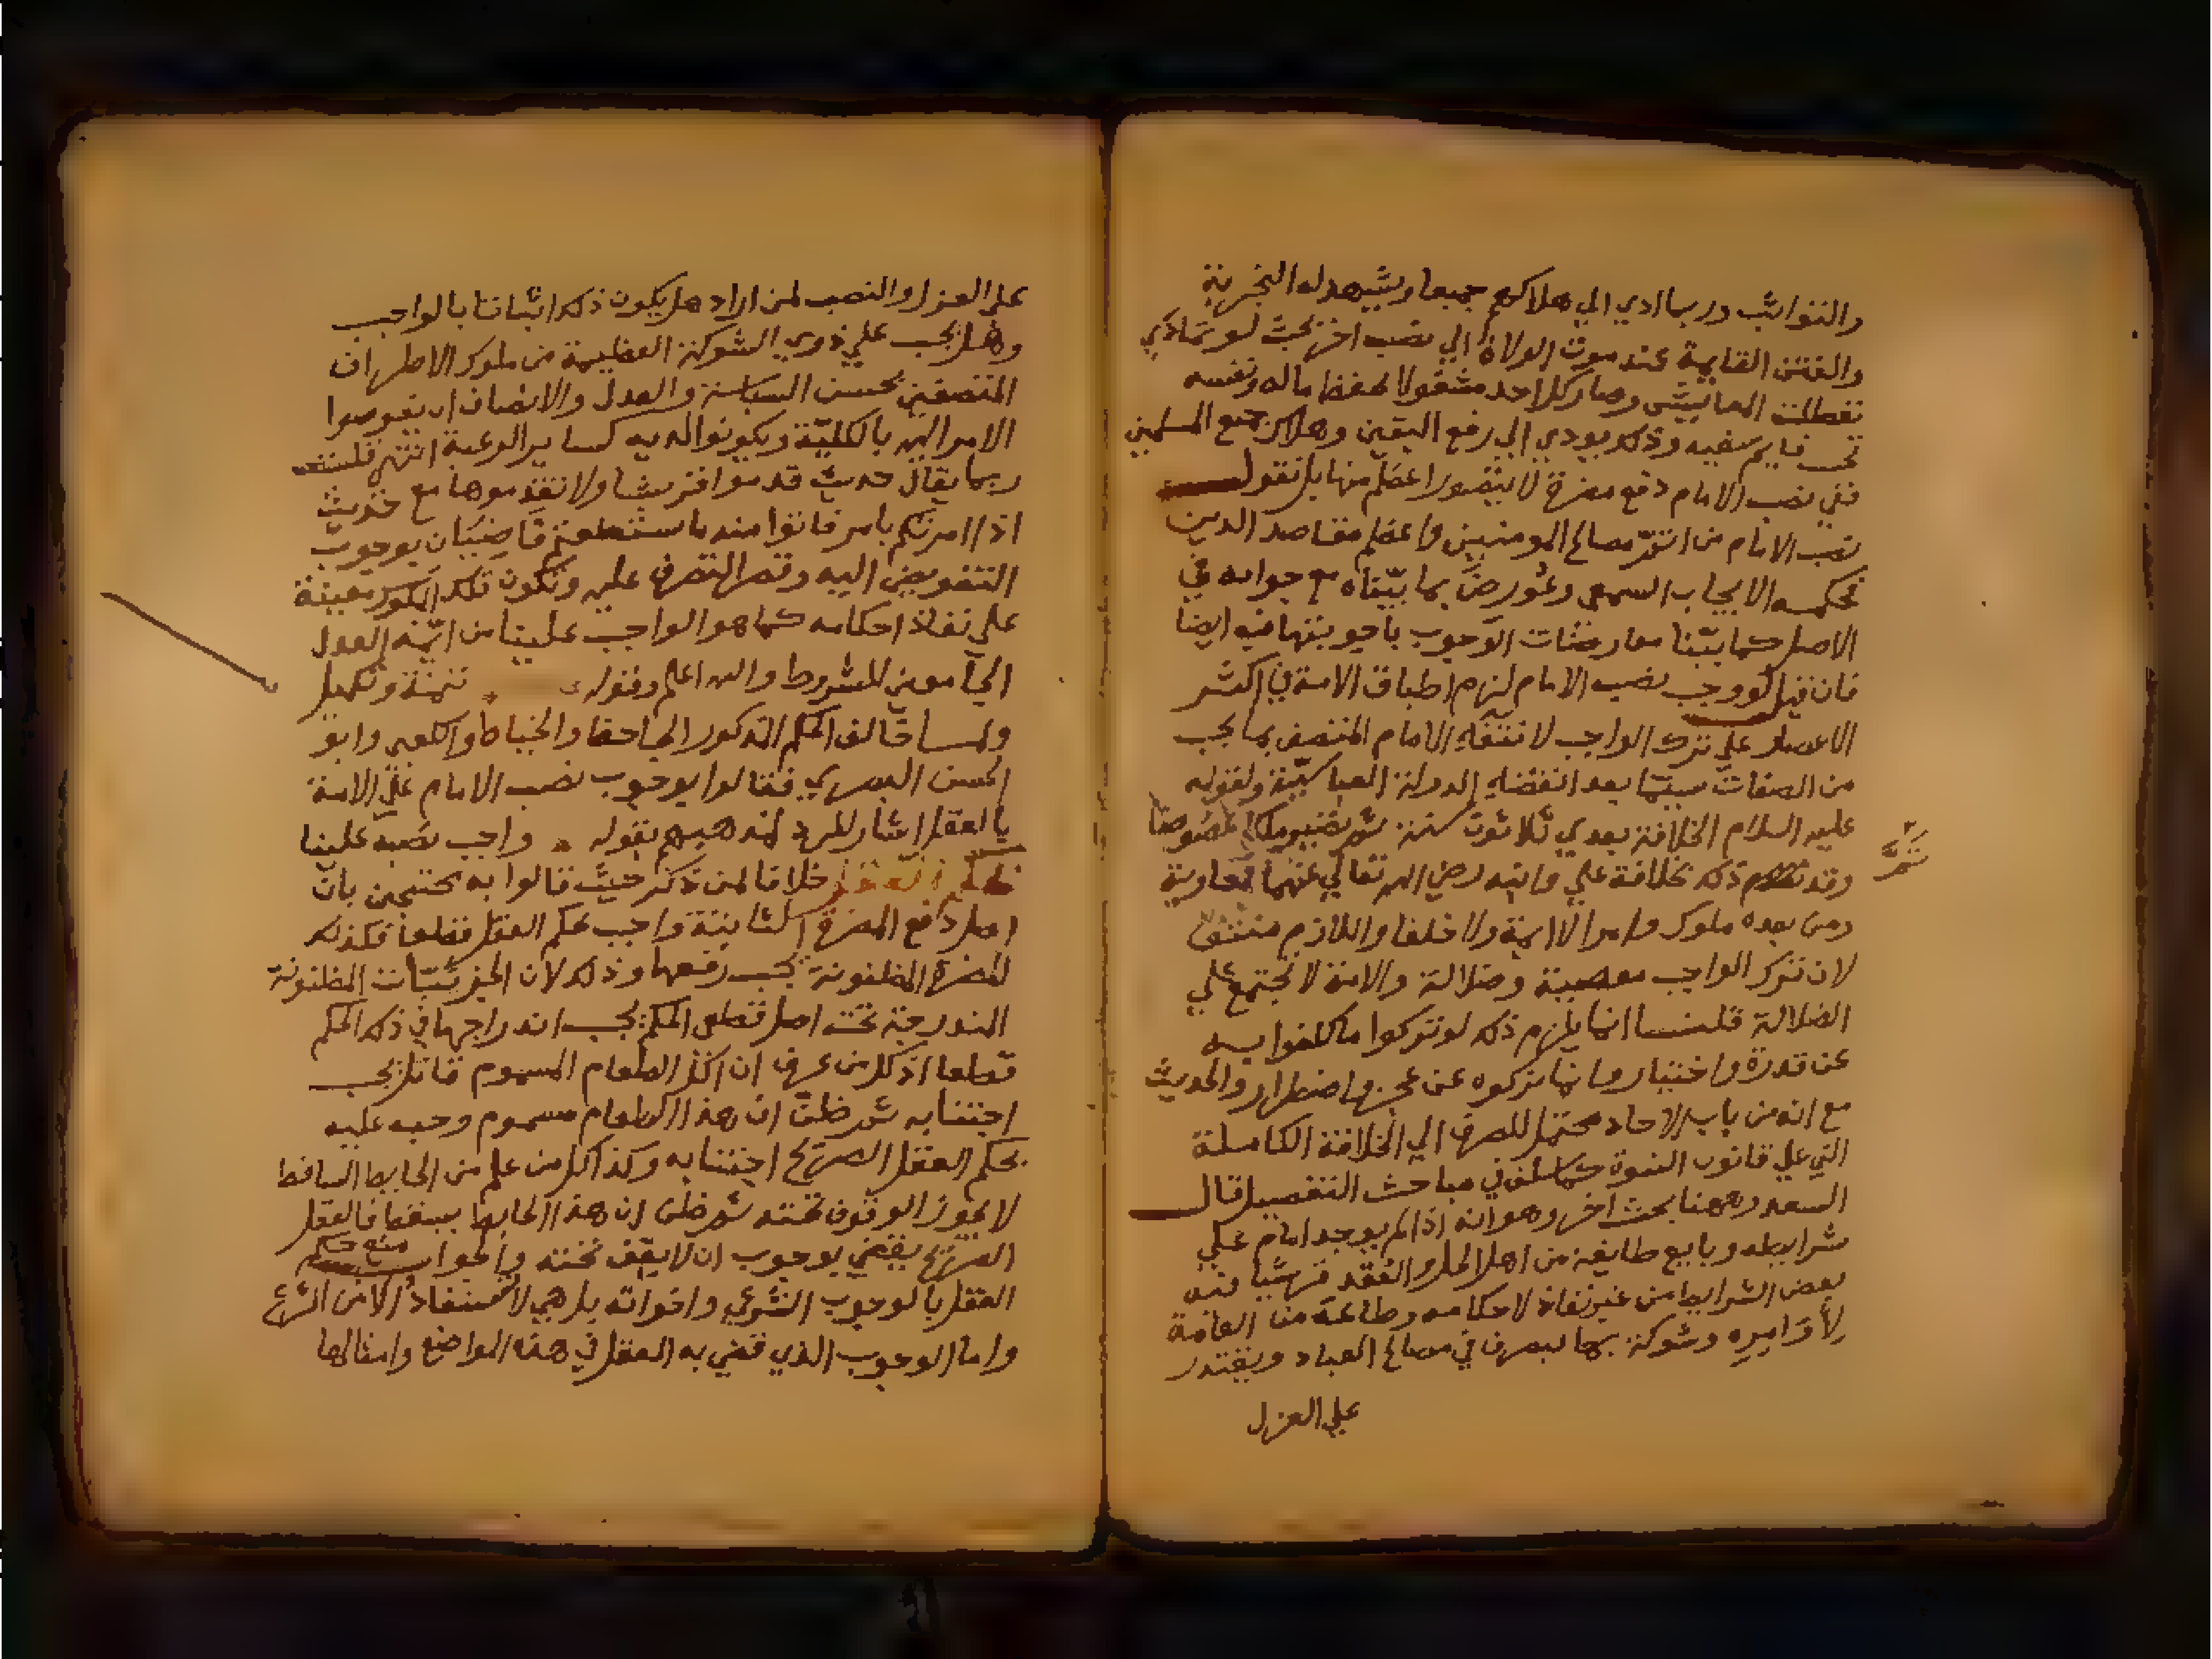 والتواثب وربما ادي الي هلاكهم جميعا ويشهد له التجربة
والفتن القايمة عند موت الولاة الي نصب اخر بحيث لو تمادي
تعطلت المعايش وصار كل احد مشغولا بحفظ ماله ونفسه
تحت قايم سيفه وذلك يودي الي رفع اليقين وهلاك جميع المسلمين
ففي نصب الامام دفع مضرة لا يتصور اعظم منها بل نقول
نصب الامام من اتم مصالح المومنين واعظم مقاصد الدين
فحكمه الايجاب السمعي وعورض بما بيّناه مع جوابه في
الاصل كما بيّنا معارضات الوجوب باجوبتها فيه ايضا
فان قيل لو وجب نصب الامام لزم اطباق الامة في اكثر
الاعصار علي ترك الواجب لانتفاء الامام المتصف بما يجب
من الصفات سيّما بعد انقضاء الدولة العباسيّة ولقوله
عليه السلام الخلافة بعدي ثلاثون سنة ثم تصير ملكا عضوضا
وقد تم ذلك بخلافة علي وابنه رضي الله تعالي عنهما فمعاوية
تمَّ
ومن بعده ملوك وامرا لا ايمة ولا خلفا واللازم منتف
لان ترك الواجب معصية وضلالة والامة لا تجتمع علي
الضلالة قلنا انما يلزم ذلك لو تركوا ما كلفوا به
عن قدرة واختيار وانما تركوه عن عجز واضطرار والحديث
مع انه من باب الاحاد محتمل للصرف الي الخلافة الكاملة
التي علي قانون النبوة كما سلف في مباحث التفصيل قال
السعد وههنا بحث اخر وهو انه اذا لم يوجد امام علي
شرايطه وبايع طايفة من اهل الحل والعقد قرشيا فيه
بعض الشرايط من غير نفاذ لاحكامه وطاعة من العامة
لأوامره وشوكة بها يتصرف في مصالح العباد ويقتدر
علي العزل
علي العزل والنصب لمن اراد هل يكون ذلك اتيانا بالواجب
وهل يجب علي ذوي الشوكة العظيمة من ملوك الاطراف
المتصفين بحسن السياسة والعدل والانصاف ان يفوضوا
الامر اليه بالكليّة ويكونوا لديه كساير الرعية انتهي قلت
ربما يقال حديث قدموا قريشا ولا تقدموها مع حديث
اذا امرتكم بامر فاتوا منه ما استطعتم قاضيان بوجوب
التفويض اليه وقصر التصرف عليه وتكون تلك الملوك معينة
علي نفاذ احكامه كما هو الواجب علينا من ايمّة العدل
الجامعين للشروط والله اعلم وقوله تتمة وتكميل
ولما خالف الحكم المذكور الجاحظ والخياط والكعبي وابو
الحسن البصري فقالوا بوجوب نصب الامام علي الامة
بالعقل اشار للرد لمذهبهم بقوله واجب نصبه علينا
خلافا لمن ذكر حيث قالوا به محتجين بان
اصل دفع المضرة الثابتة واجب بحكم العقل قطعا فكذلك
المضرة المظنونة يجب رفعها وذلك لان الجزئيّات المظنونة
المندرجة تحت اصل قطعي الحكم يجب اندراجها في ذلك الحكم
قطعا اذ كل من عرف ان اكل الطعام المسموم قاتل يجب
اجتنابه ثم ظن ان هذا الطعام مسموم وجب عليه
بحكم العقل الصريح اجتنابه وكذا كل من علم من الحايط الساقط
لا يجوز الوقوف تحته ثم ظن ان هذا الحايط يسقط فالعقل
الصريح يقضي بوجوب ان لا يقف تحته والجواب منع حكم
العقل بالوجوب الشرعي واخواته بل هي لا تستفاد الا من الشرع
واما الوجوب الذي قضي به العقل في هذه المواضع وامثالها